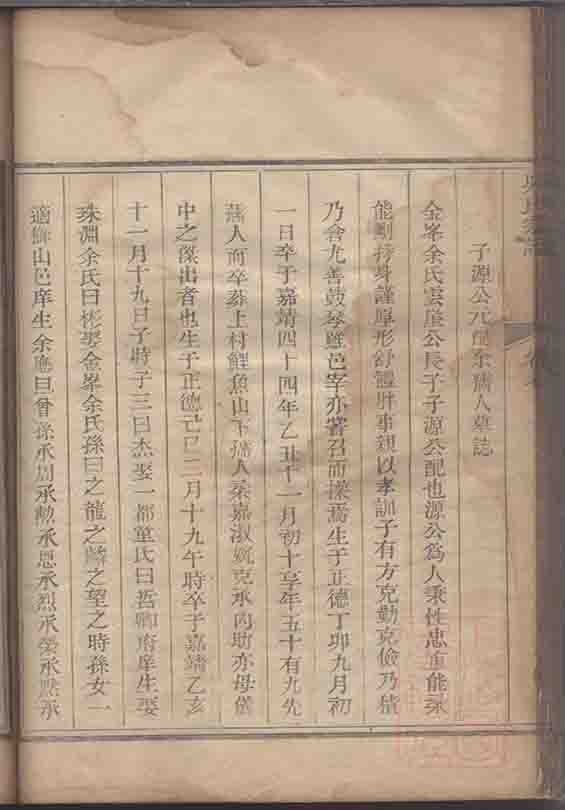 吳氏宗譜
子源公元配余孺人墓誌
金峯余氏雲崖公長子子源公配也源公為人秉性忠直能柔
能剛持身謹厚形舒體胖事親以孝訓子有方克勤克儉乃積
乃倉尤善鼓琴雖邑宰亦嘗召而操焉生于正德丁卯九月初
一日卒于嘉靖四十四年乙丑十一月初十享年五十有九先
孺人而卒葬上村鯉魚山下孺人秉嘉淑婉克承內助亦母儀
中之傑出者也生于正德己巳二月十九午時卒于嘉靖乙亥
十一月十九日子時子三曰杰娶一都童氏曰哲卿府庠生娶
珠淵余氏曰彬娶金峯余氏孫曰之龍之麟之望之時孫女一
適鮮山邑庠生余應曰曾孫承周承勲承恩承烈承榮承點承